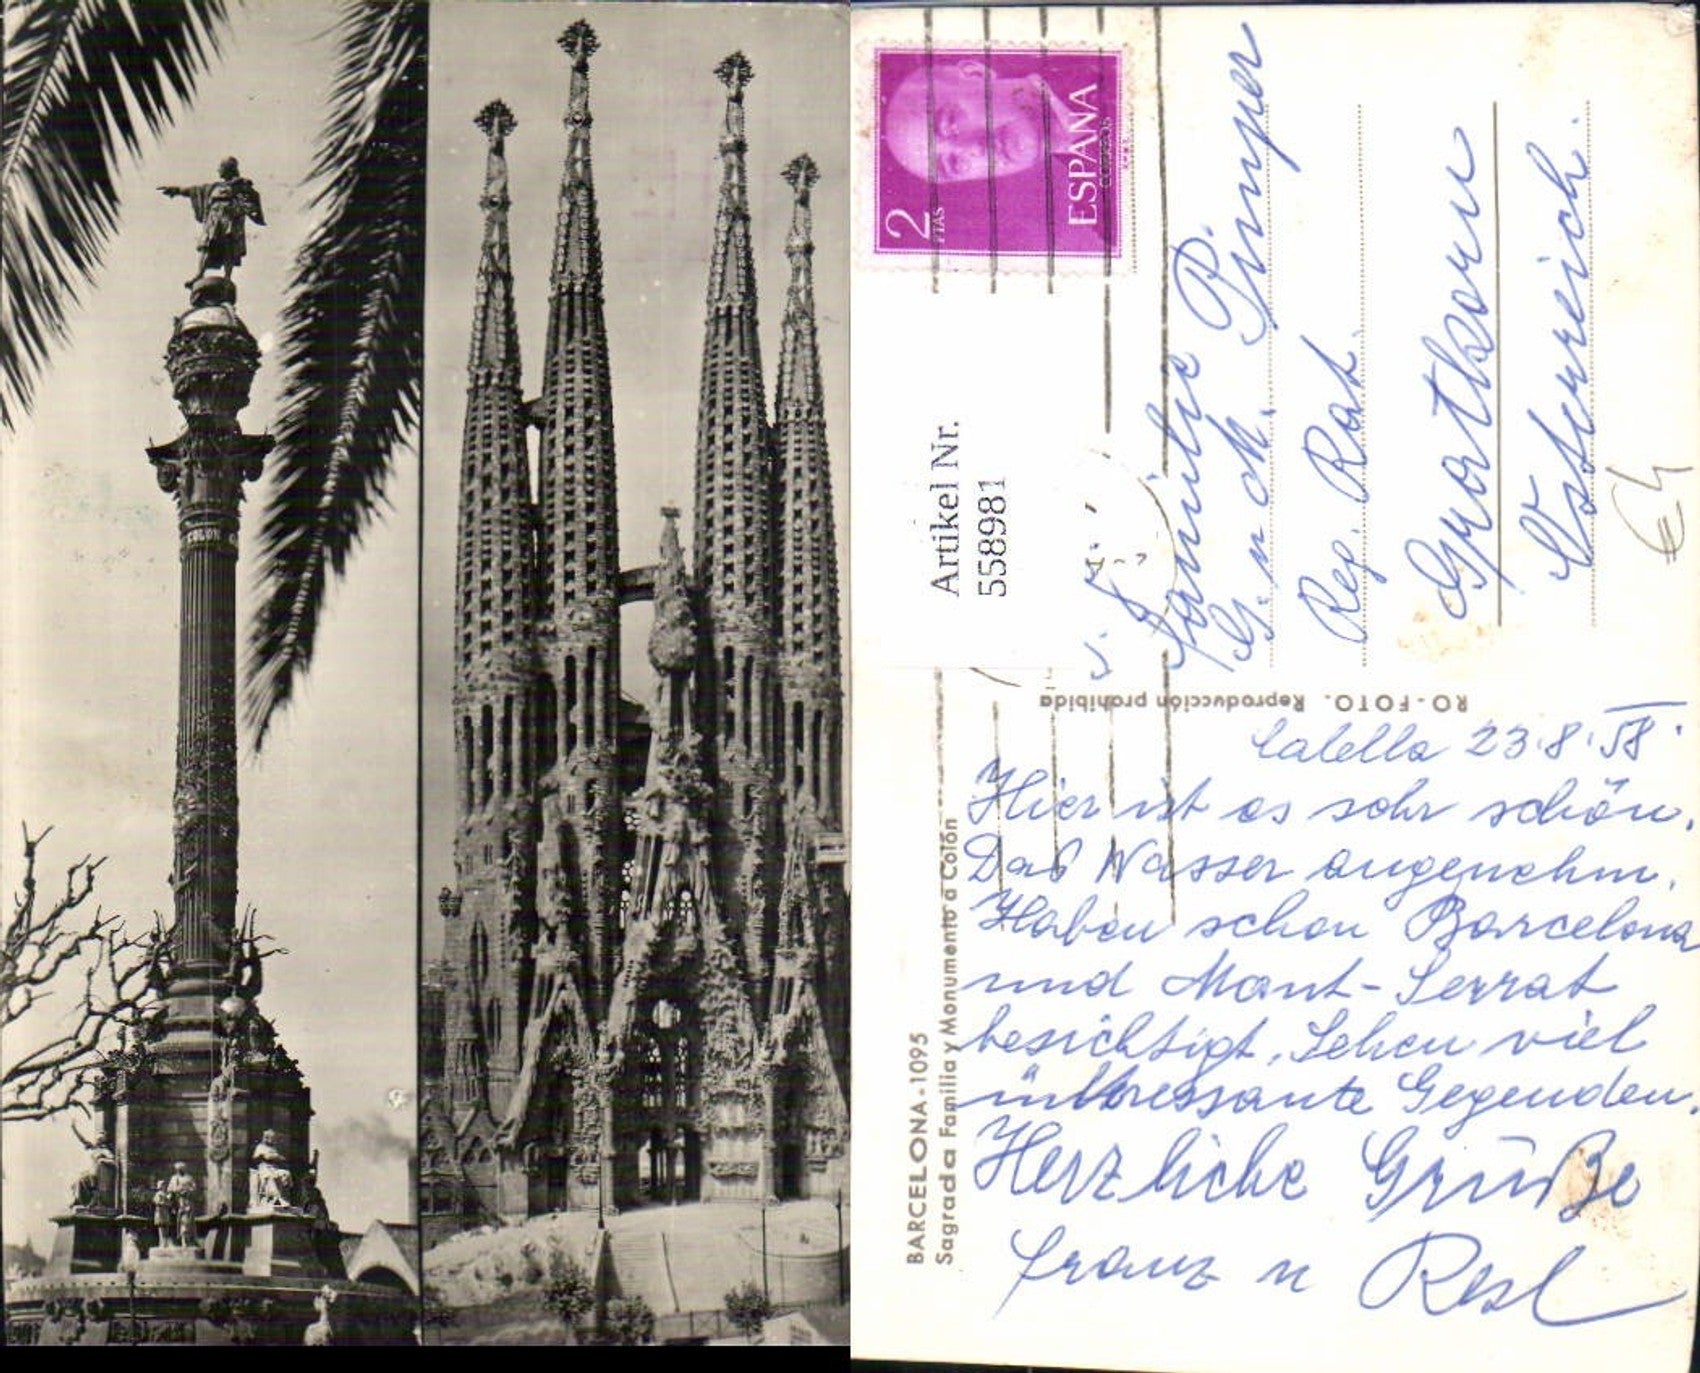 2
PTAS
ESPAÑA
CORREOS
Artikel Nr.
558981
Familie P. Pimper
Reg. Rat.
Österreich.
€4
RO-FOTO. Reproducción prohibida
BARCELONA - 1095
Sagrada Familia y Monumento a Colón
Calella 23.8.58.
Hier ist es sehr schön.
Das Wasser angenehm.
Haben schon Barcelona
und Mont-Serrat
besichtigt, Sehen viel
interessante Gegenden.
Herzliche Grüße
Franz u Resl